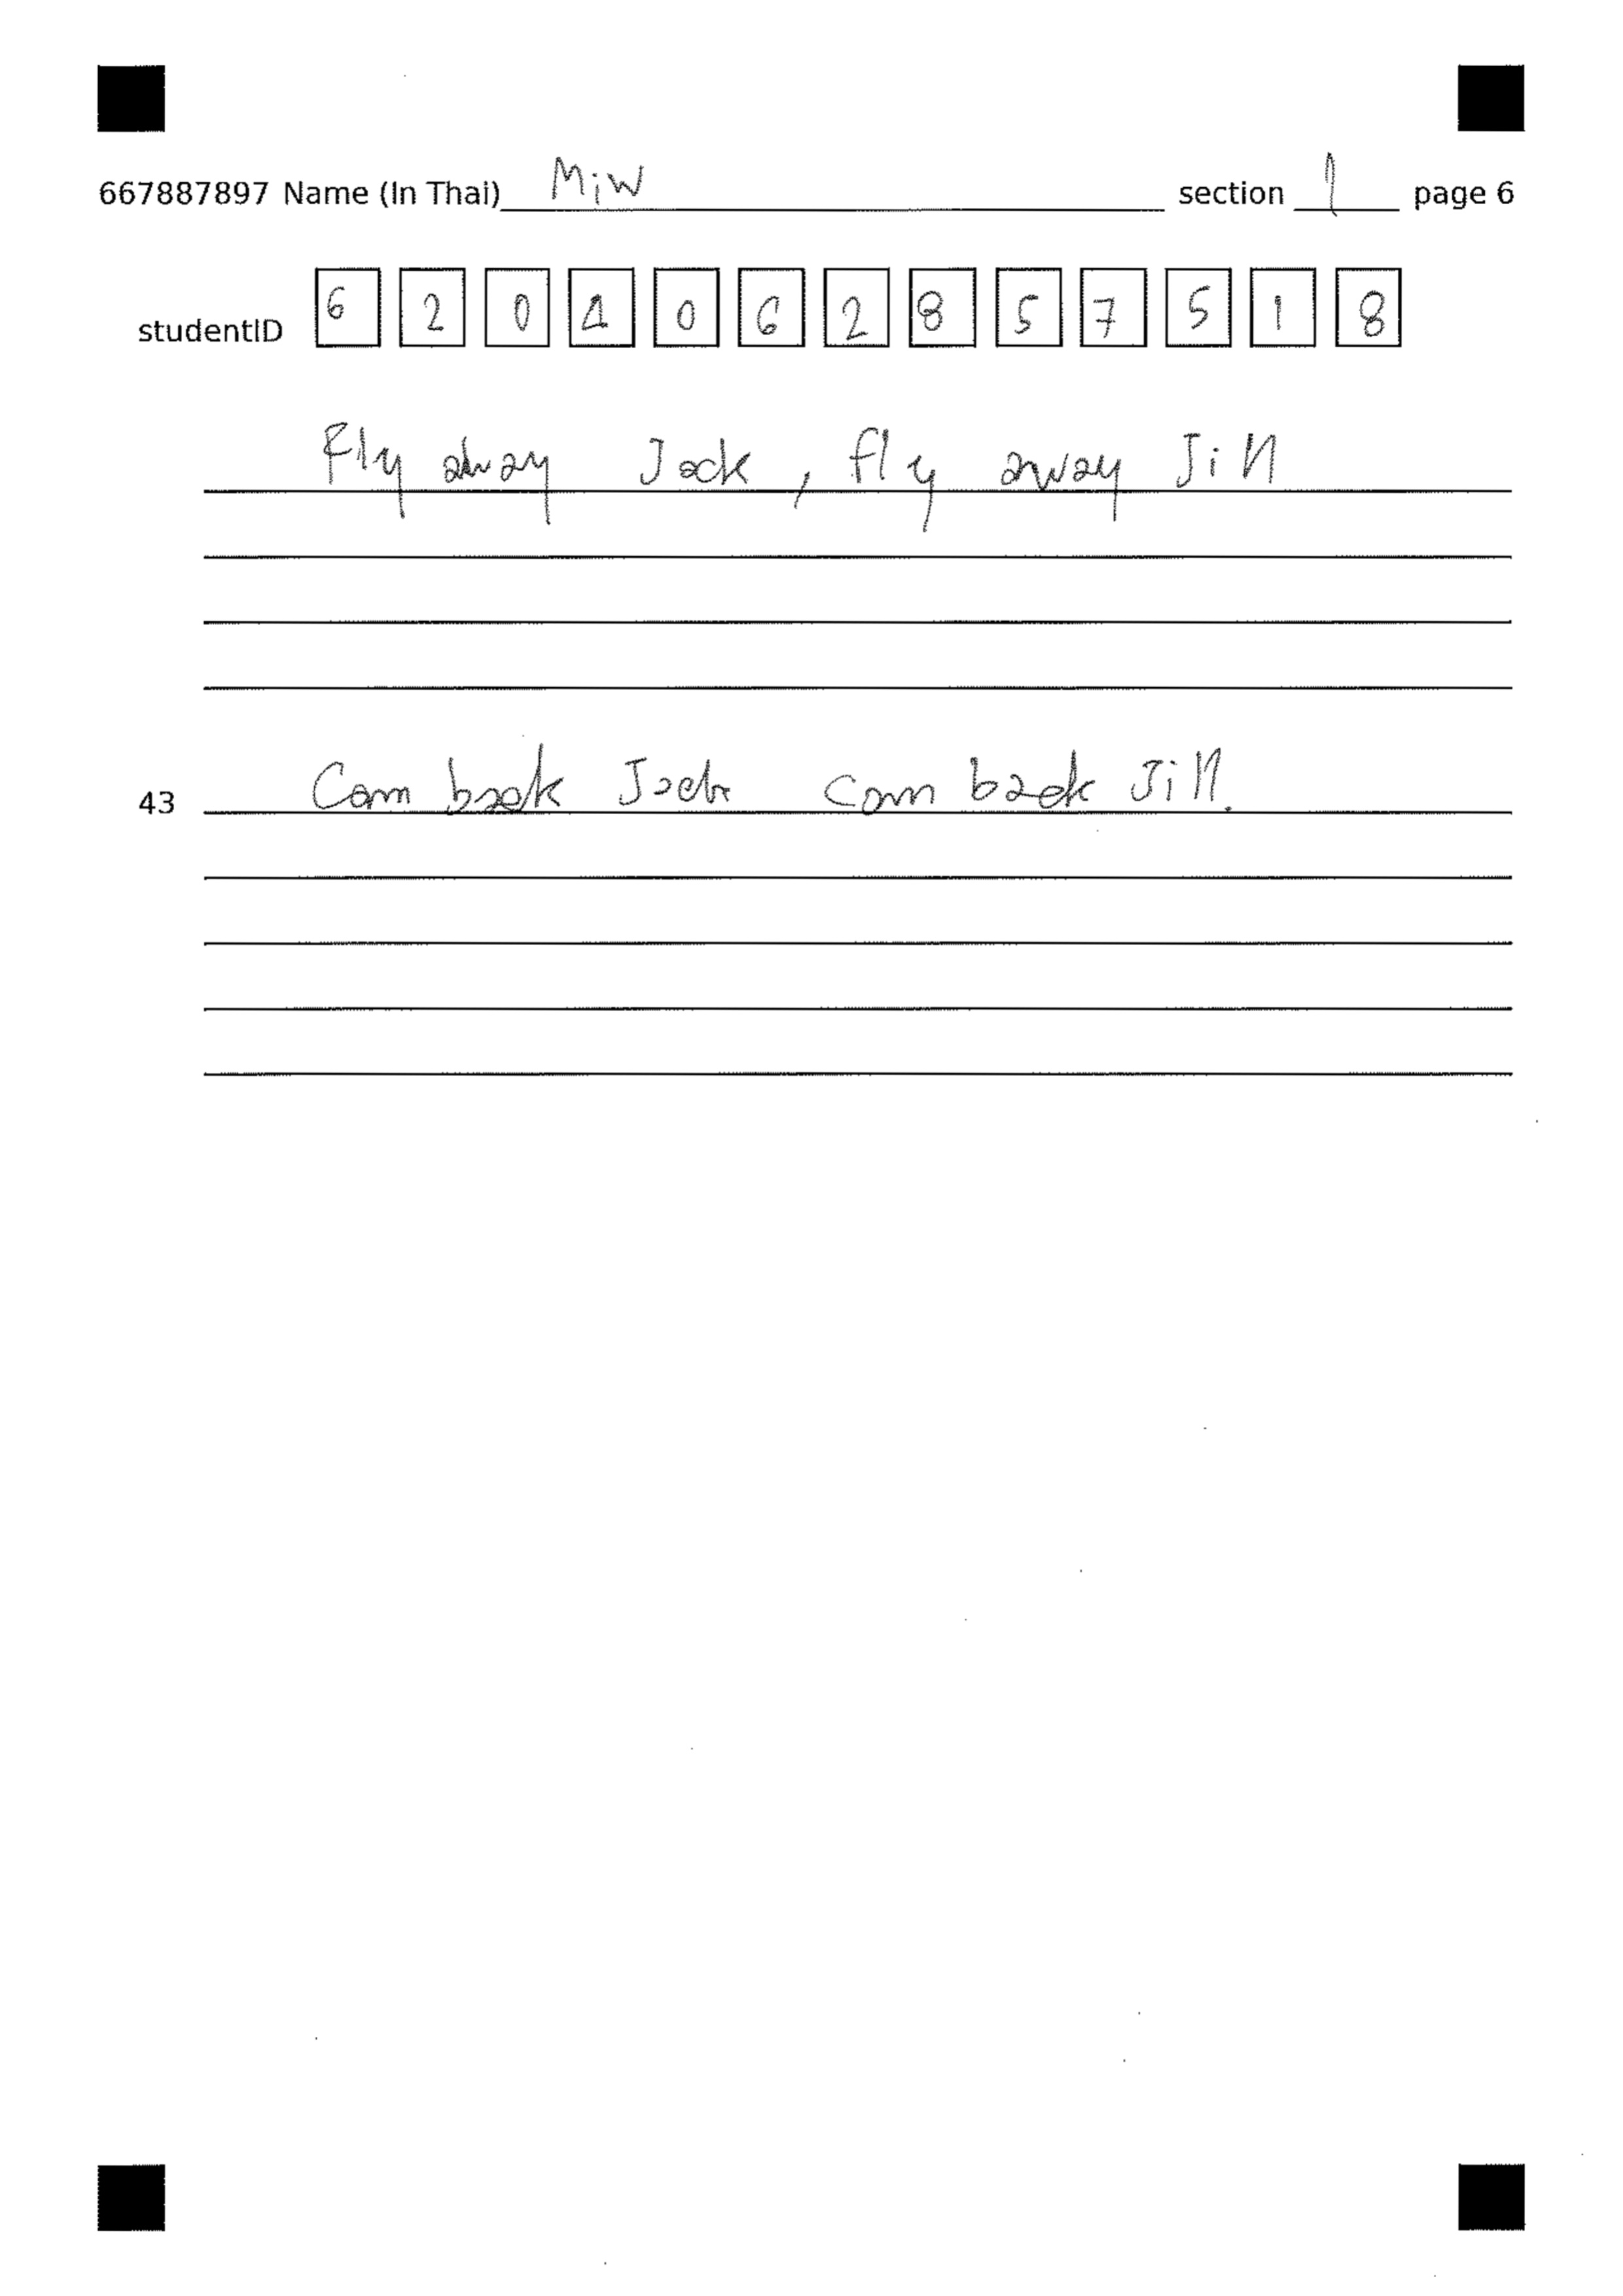 667887897 Name (In Thai) Miw section 1 page 6
studentID 6 2 0 4 0 6 2 8 5 7 5 1 8
Fly away Jack, fly away Jill
43 Com back Jack com back Jill.